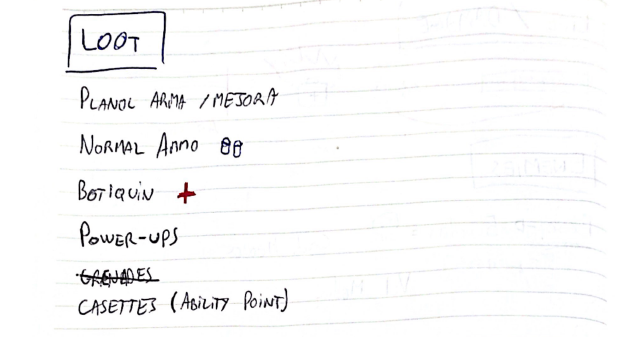 LOOT
PLANOL ARMA / MEJORA
NORMAL AMMO
BOTIQUIN
POWER-UPS
GRENADES
CASETTES (ABILITY POINT)